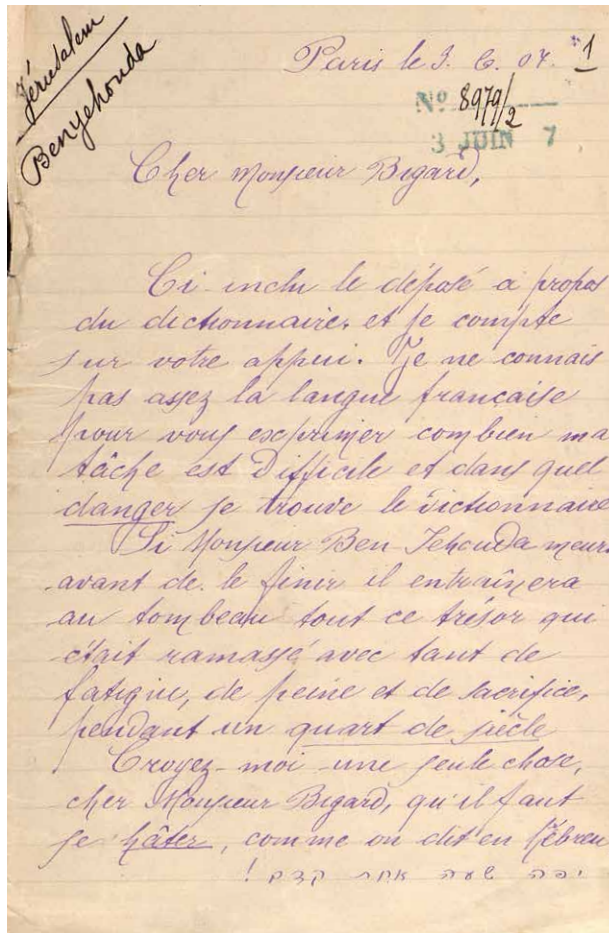 Jérusalem
Benyehouda
Paris le 3. 6. 07.
1
No 8979/2
3 JUIN 7
Cher Monsieur Bigard,
Ci-inclu le déposé a propos
du dictionnaire, et je compte
sur votre appui. Je ne connais
pas assez la langue française
pour vous exprimer combien ma
tâche est Difficile et dans quel
danger se trouve le Dictionnaire
Si Monsieur Ben-Jehouda meurt
avant de le finir il entraînera
au tombeau tout ce trésor qui
était ramassé avec tant de
fatigue, de peine et de sacrifice,
pendant un quart de siècle
Croyez-moi une seule chose,
cher Monsieur Bigard, qu'il faut
se hâter, comme on dit en hébreu
יפה שעה אחת קדם !